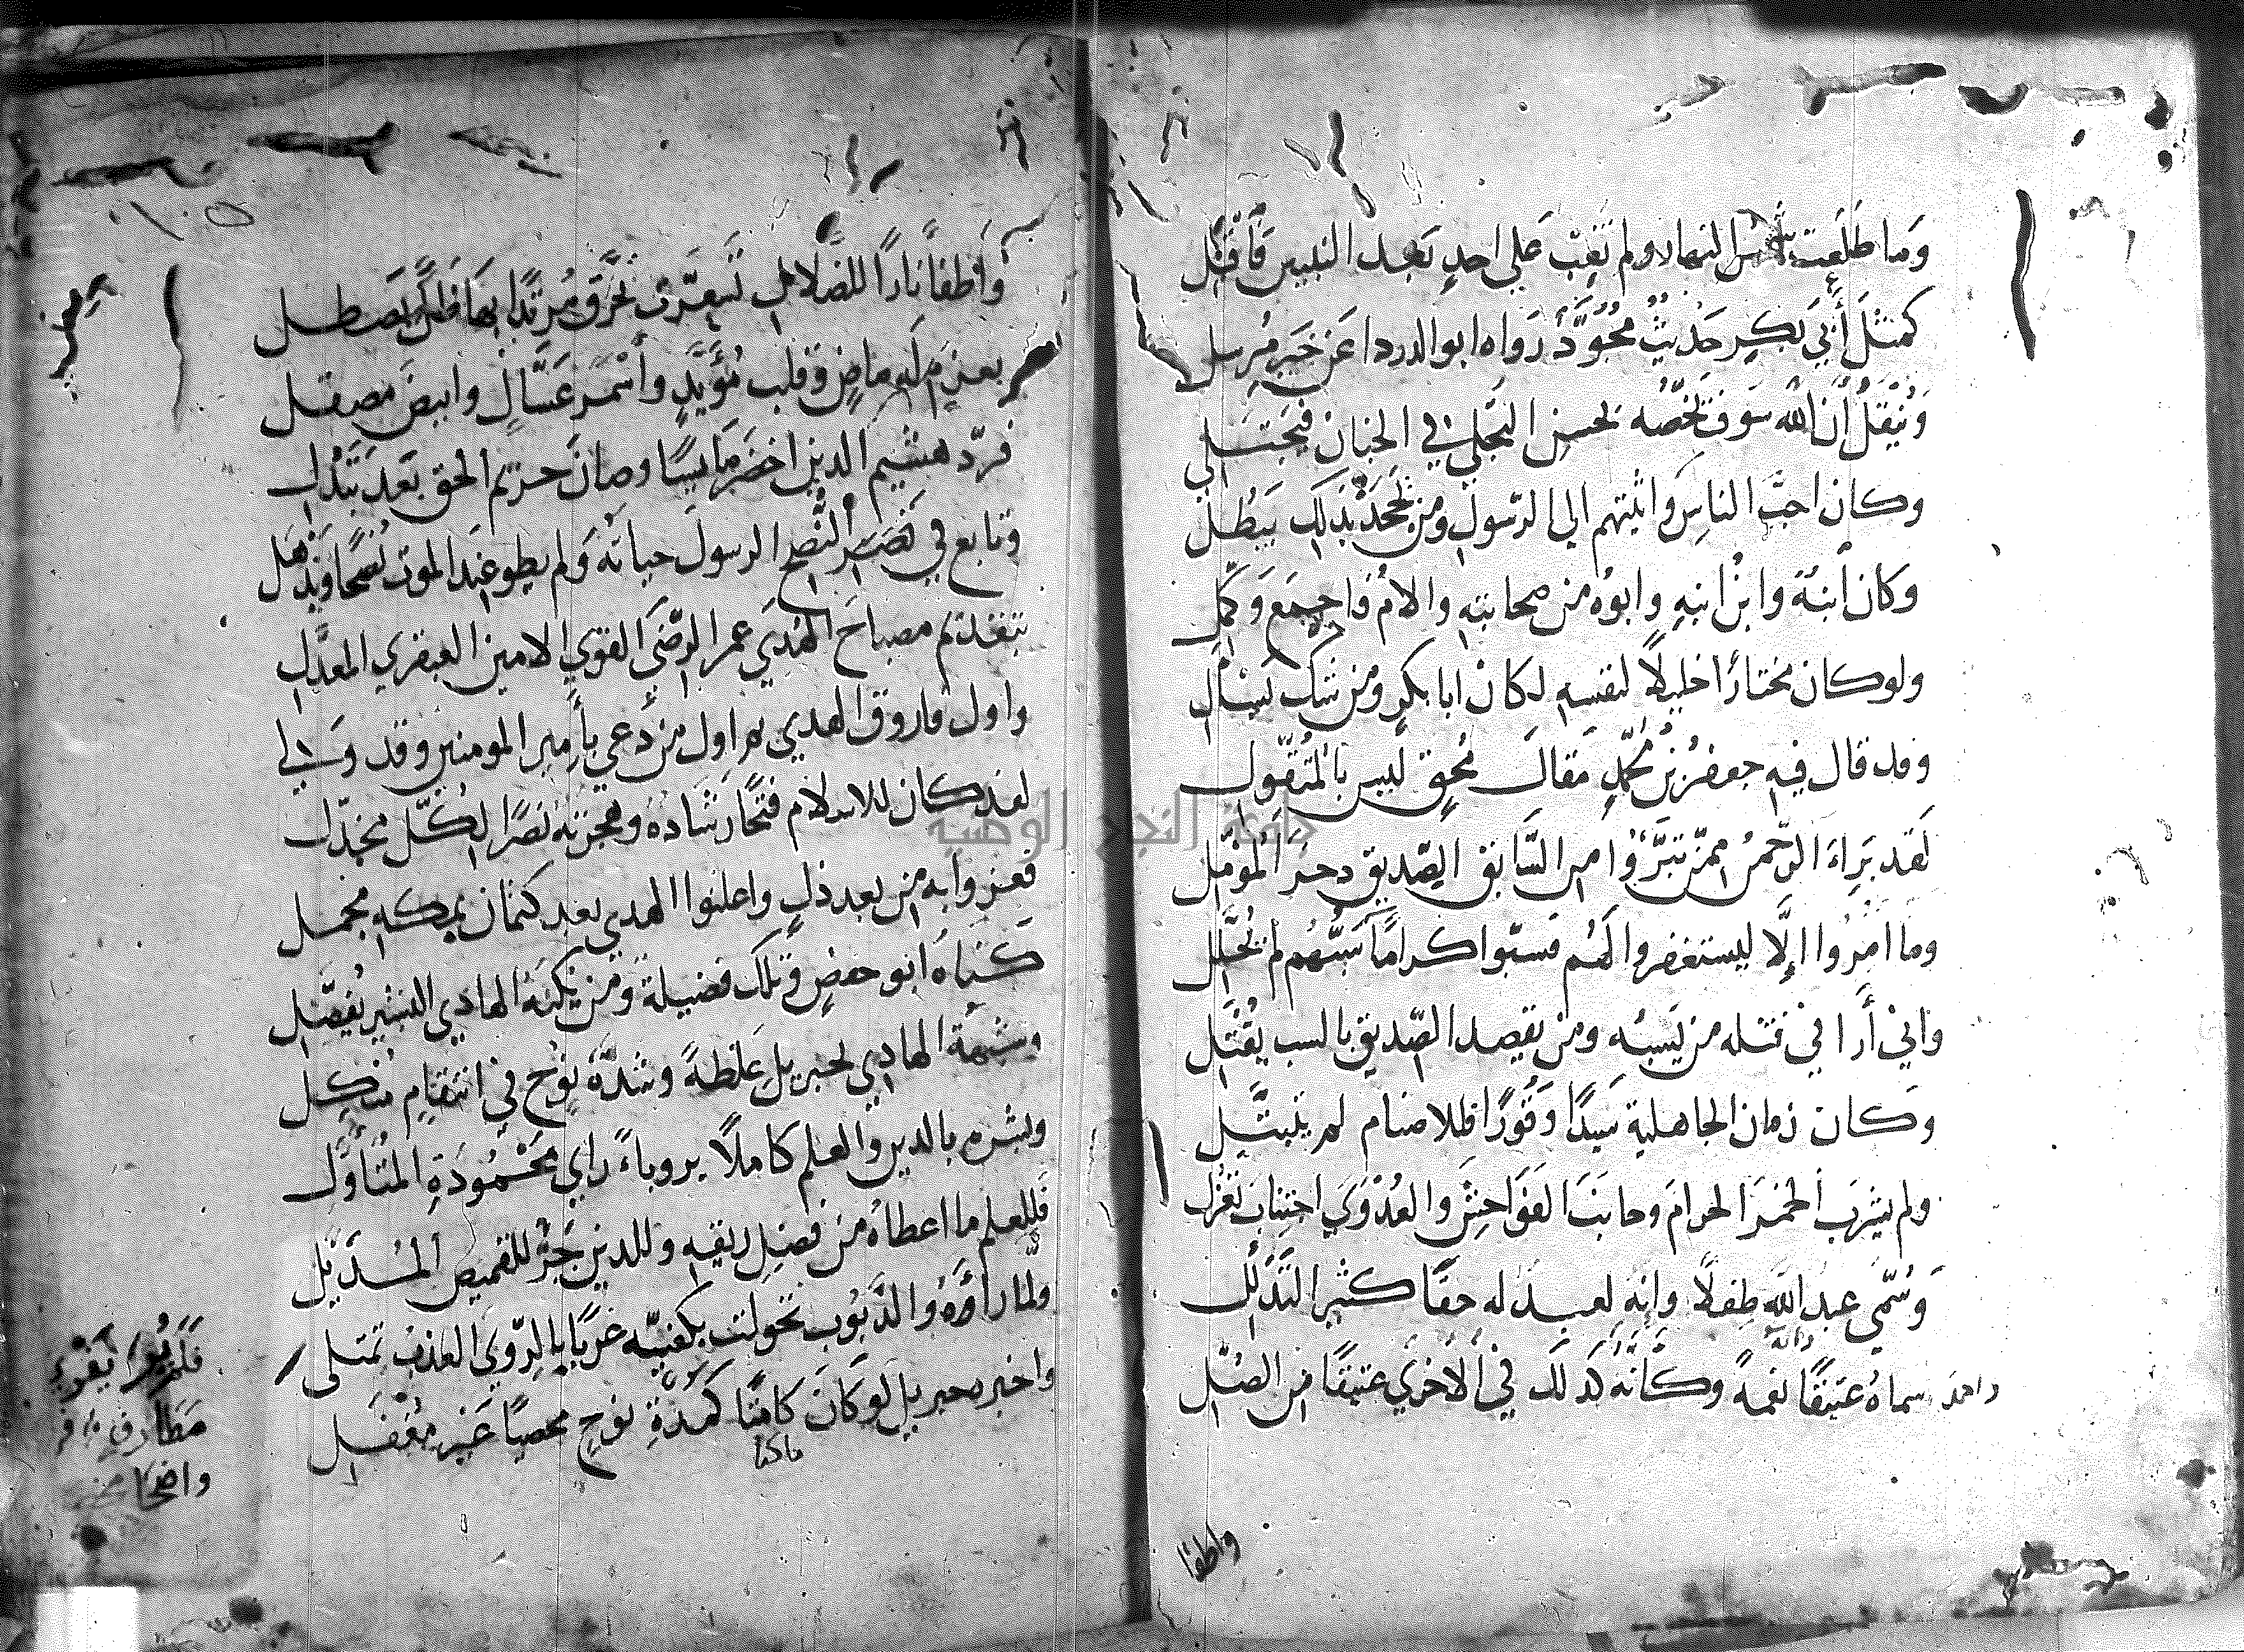 وَما طَلَعَت شمس النهار ولم تَغِب عَلى احدٍ بَعد النبيين فَافضَل
كمثْلَ أَبي بَكرٍ حَديثٌ مُجَوَّدٌ رَواه ابو الدردا عَن خَيرِ مُرسل
وَنُيقنُ أنَّ الله سَوفَ يَخصّه بحسن التجلي في الجنان فيَجتَلي
وكان احبَّ الناسِ واثبتهم الي الرّسول ومن يَجحَدْ بذلك يَبطُل
وَكان ابنهُ وابنُ ابنهِ وابوُه من صحابتهِ والامُ فاجمع وَكمِّل
ولو كان مختارًا خليلًا لنفسهِ لكان ابا بكرٍ ومن شك يَسْأل
وقد قال فيهِ جعفرُ بنُ مُحمّدٍ مَقالَ مُحقٍ ليس بالمُتقوّل
لَقد بَرِاءَ الرّحمنُ ممّن تبرَّؤا من السَّابق الصّديق دخر المؤمّل
وما امُرُوا إلَّا ليستغفروا لَهُم فسبّوا كرامًا سَبُّهُم لم يُحَلَّل
وَاني أَرا في قتله من يَسبّه ومن يقصد الصّديق بالسب يُقْتَل
وَكان زمان الجاهلية سَيدًا وَقُورًا فللاصنام لم يتبتَّل
ولم يشربَ الخمرَ الحرامَ وجانبَ الفوَاحِشَ والعُدْوَي اجتِنابَ تَعَزُل
وَسُمّي عبدَ اللهِ طِفلًا وإنه لعبدٌ له حقًا كثير التَذَلل
واحمد سماهُ عتيقًا لقمهً وكانَّه كذلك في الاخرَي عتيقًا من الصُلّل
والله
واطفا
١٠٥
وأطفأ نارًا للضلال تسَعّرت تُحَرِّق مُرتدًّا بها ظَلَّ يَصطلي
بعزمٍ له ماضٍ وَقلب مُؤَيَّدٍ وأسْمَرَ عَسَّالٍ وابيضَ مصقل
فردّ هشيم الدين اخضرَ مايسًا وصانَ حريم الحق بَعدَ تبَذُّل
وتابع في نَصرِ النُصْحِ الرسول حياتَه وَلم يطوِ عِندَ الموت نُصحًا ويَذهَل
بتقديم مصباحَ الهُدَي عمر الرّضَي القوي الامين العبقري المعدَّل
واول فاروق الهدي هو اول من دُعي بأمير المومنين وقد وَلي
لقد كان للاسلام فتحًا رَشادهُ وهجرته نصرًا لكُلّ مخذّل
فعزوا به من بعد ذلٍ واعلنوا الهدي بعد كتمان بمكه مجمل
كَنَاهُ ابو حفصٍ وتلك فضيلةٌ وَمن يكنه الهادي البشير يُفضّل
وشبهَهُ الهادِي لجبريل غلظةً وشدّة نوُحٍ في انتقامٍ منكل
وبشره بالدين والعلم كاملًا بروياءَ رايٍ مَحْمُودَةِ المُتأوَّل
فَللعلم ما اعطاهُ من فضلِ ريقهِ وللدين جَرٌّ للقميص المُسذَيّل
ولمَّا رأوهُ والدَّنوُب تحولت بكفيّه غربًا بالرّوي العذب تمتلي
واخبره جبريل لو كَانَ كامثًا كمدّةِ نوحٍ محصيًا غير مغفل
ماكثا
فلم يُرَ يَفْري